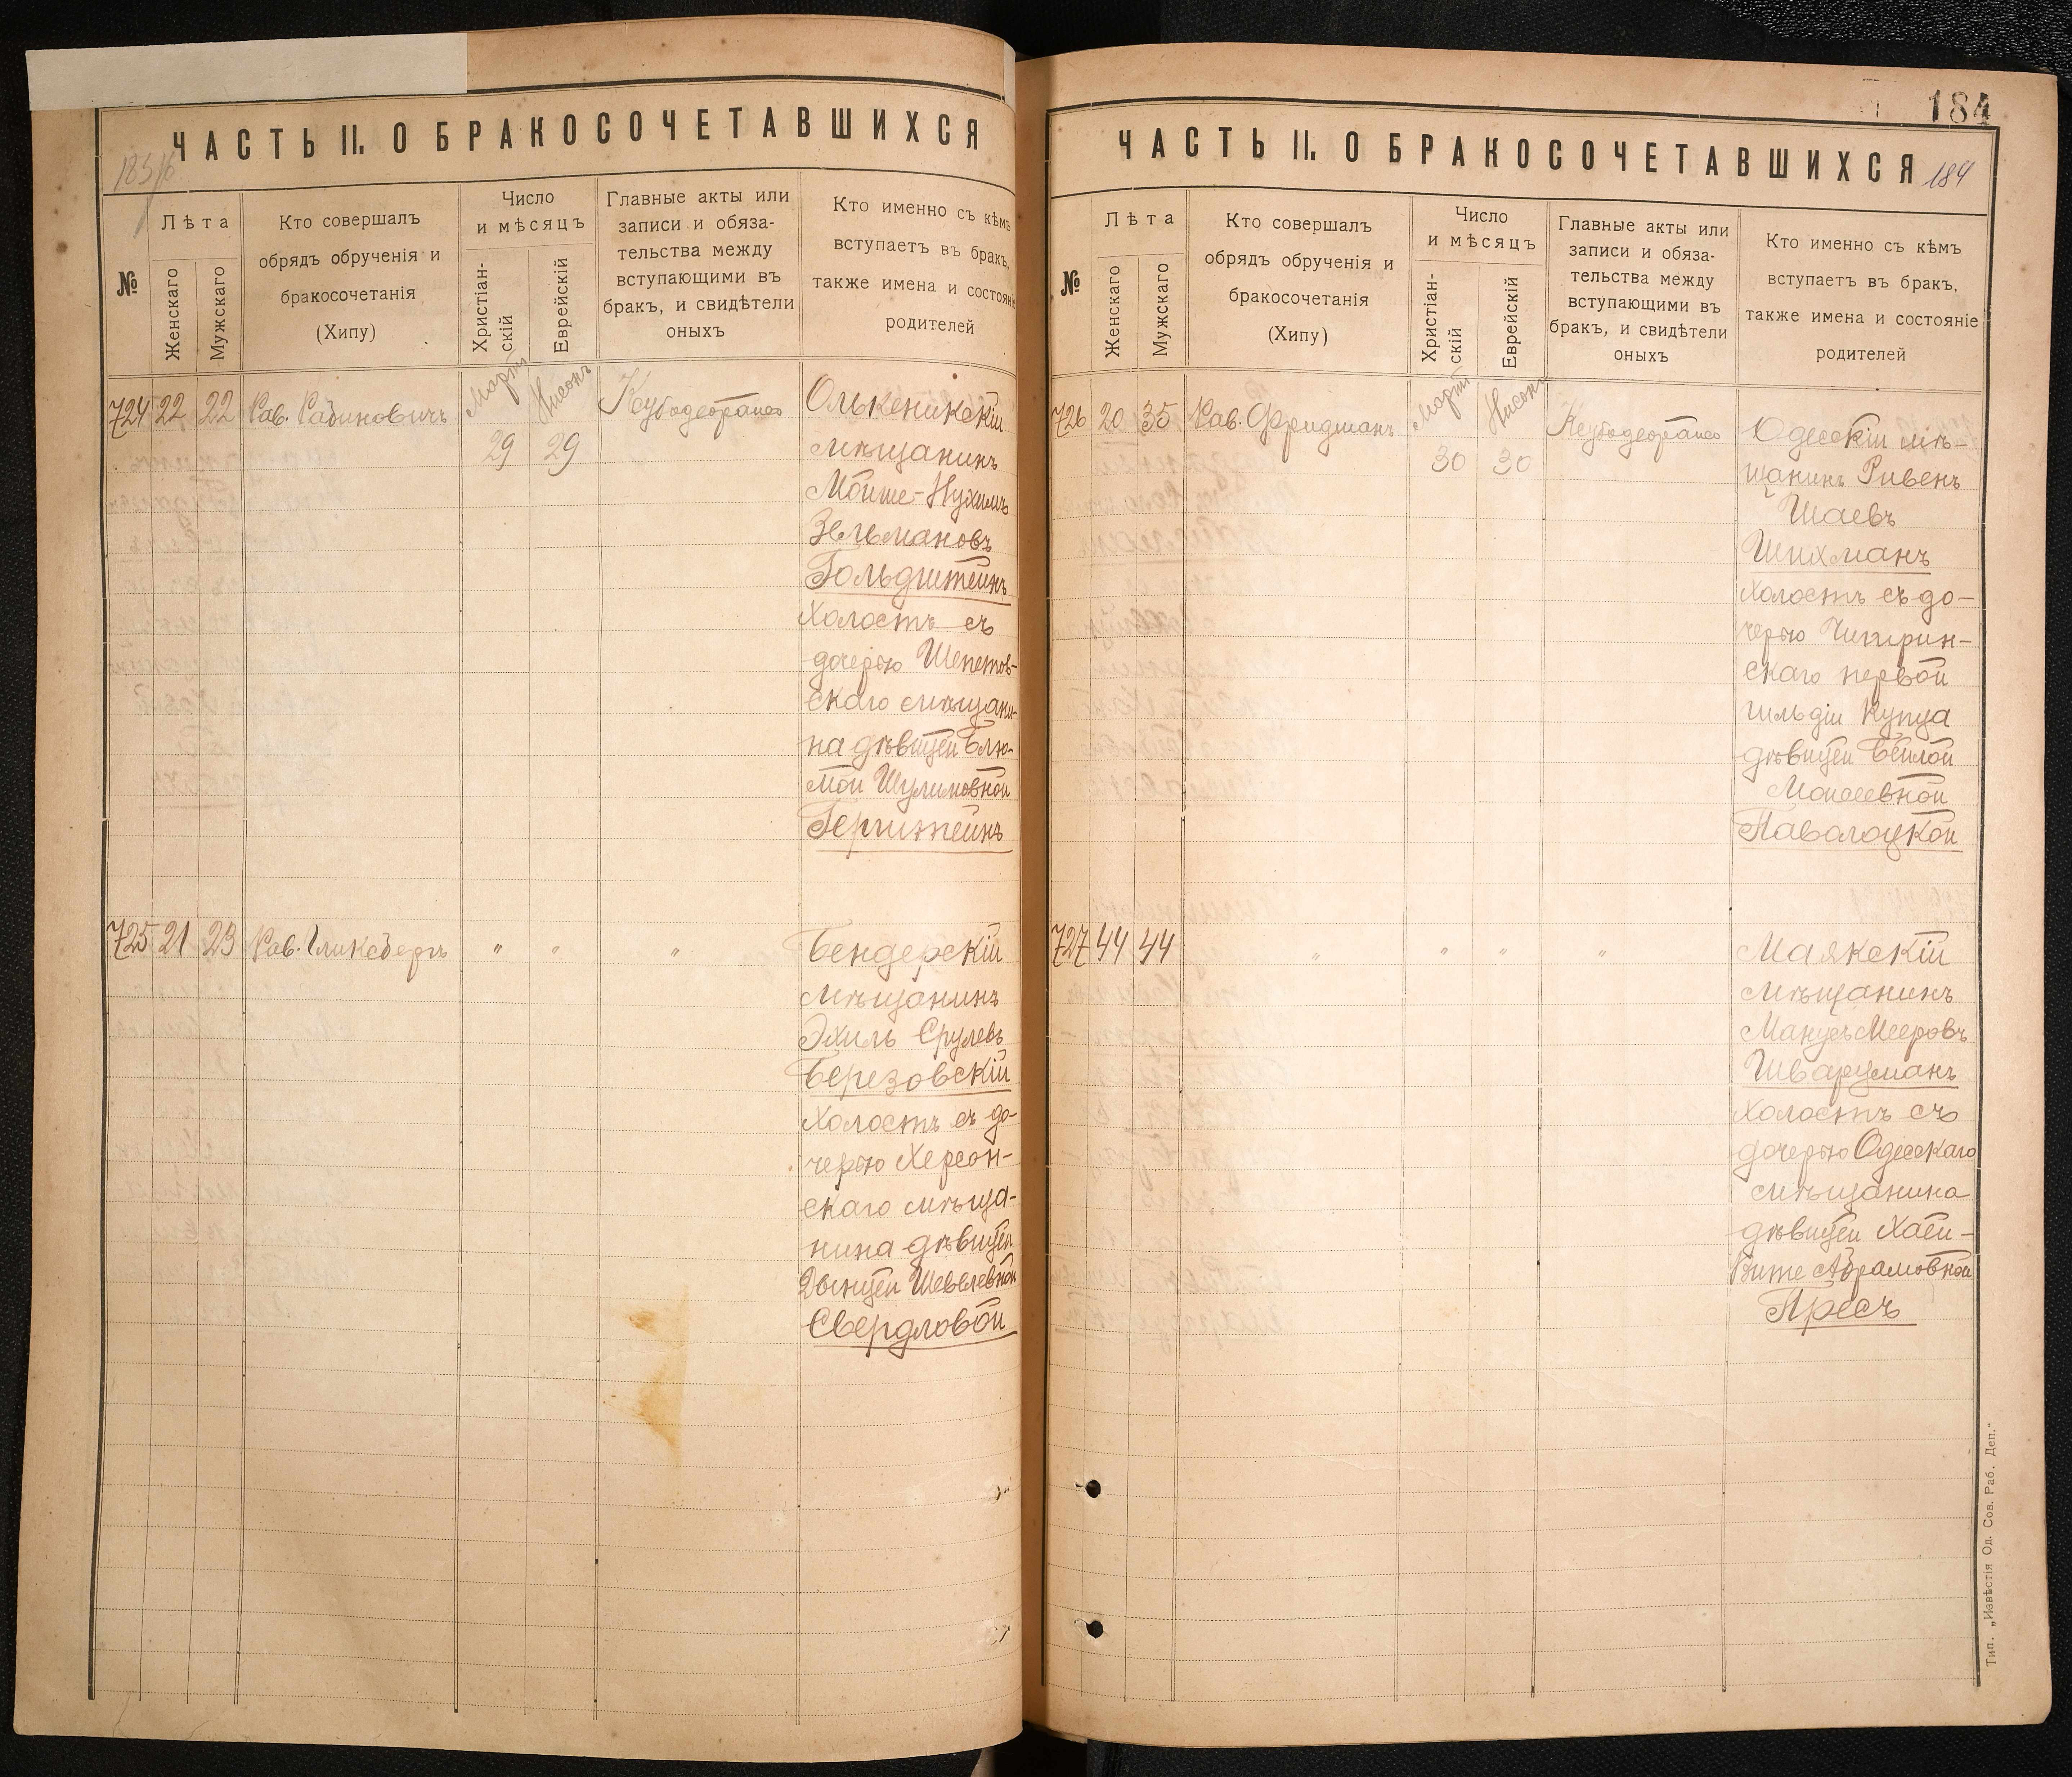 ЧАСТЬ II. О БРАКОСОЧЕТАВШИХСЯ
№
Лѣта
Женскаго
Мужскаго
Кто совершалъ
обрядъ обрученія и
бракосочетанія
(Хипу)
Число
и мѣсяцъ
Христіан-
скій
Еврейскій
Главные акты или
записи и обяза-
тельства между
вступающими въ
бракъ, и свидѣтели
оныхъ
Кто именно съ кѣмъ
вступаетъ въ бракъ,
также имена и состояніе
родителей
724 22 22 Рав. Рабиновичъ
Мартъ Нисонъ
29 29
Олькеникскій
мѣщанинъ
Мойше-Нухимъ
Зельмановъ
Гольдштейнъ
холостъ съ
дочерью Шепетов-
скаго мѣщани-
на дѣвицей Блю-
мой Шулимовной
Герштейнъ
725 21 23 Рав. Гликсбергъ " " "
Бендерскій
мѣщанинъ
Эхиль Срулевъ
Березовскій
холостъ съ до-
черью Херсон-
скаго мѣща-
нина дѣвицей
Двицей Шевелевной
Свердловой
184
ЧАСТЬ II. О БРАКОСОЧЕТАВШИХСЯ 184
№
Лѣта
Женскаго
Мужскаго
Кто совершалъ
обрядъ обрученія и
бракосочетанія
(Хипу)
Число
и мѣсяцъ
Христіан-
скій
Еврейскій
Главные акты или
записи и обяза-
тельства между
вступающими въ
бракъ, и свидѣтели
оныхъ
Кто именно съ кѣмъ
вступаетъ въ бракъ,
также имена и состояніе
родителей
726 20 35 Рав. Фридманъ
Мартъ Нисонъ
30 30
Одесскій мѣ-
щанинъ Ривенъ
Шаевъ
Шихманъ
холостъ съ до-
черью Чигирин-
скаго первой
гильдіи купца
дѣвицей Бейлой
Моисеевной
Паволоцкой
727 44 44 " " " "
Маякскій
мѣщанинъ
Манусъ Мееровъ
Шварцманъ
холостъ съ
дочерью Одесскаго
мѣщанина
дѣвицей Хаей-
Абрамовной
Пресъ
Тип. „Извѣстія Од. Сов. Раб. Деп."